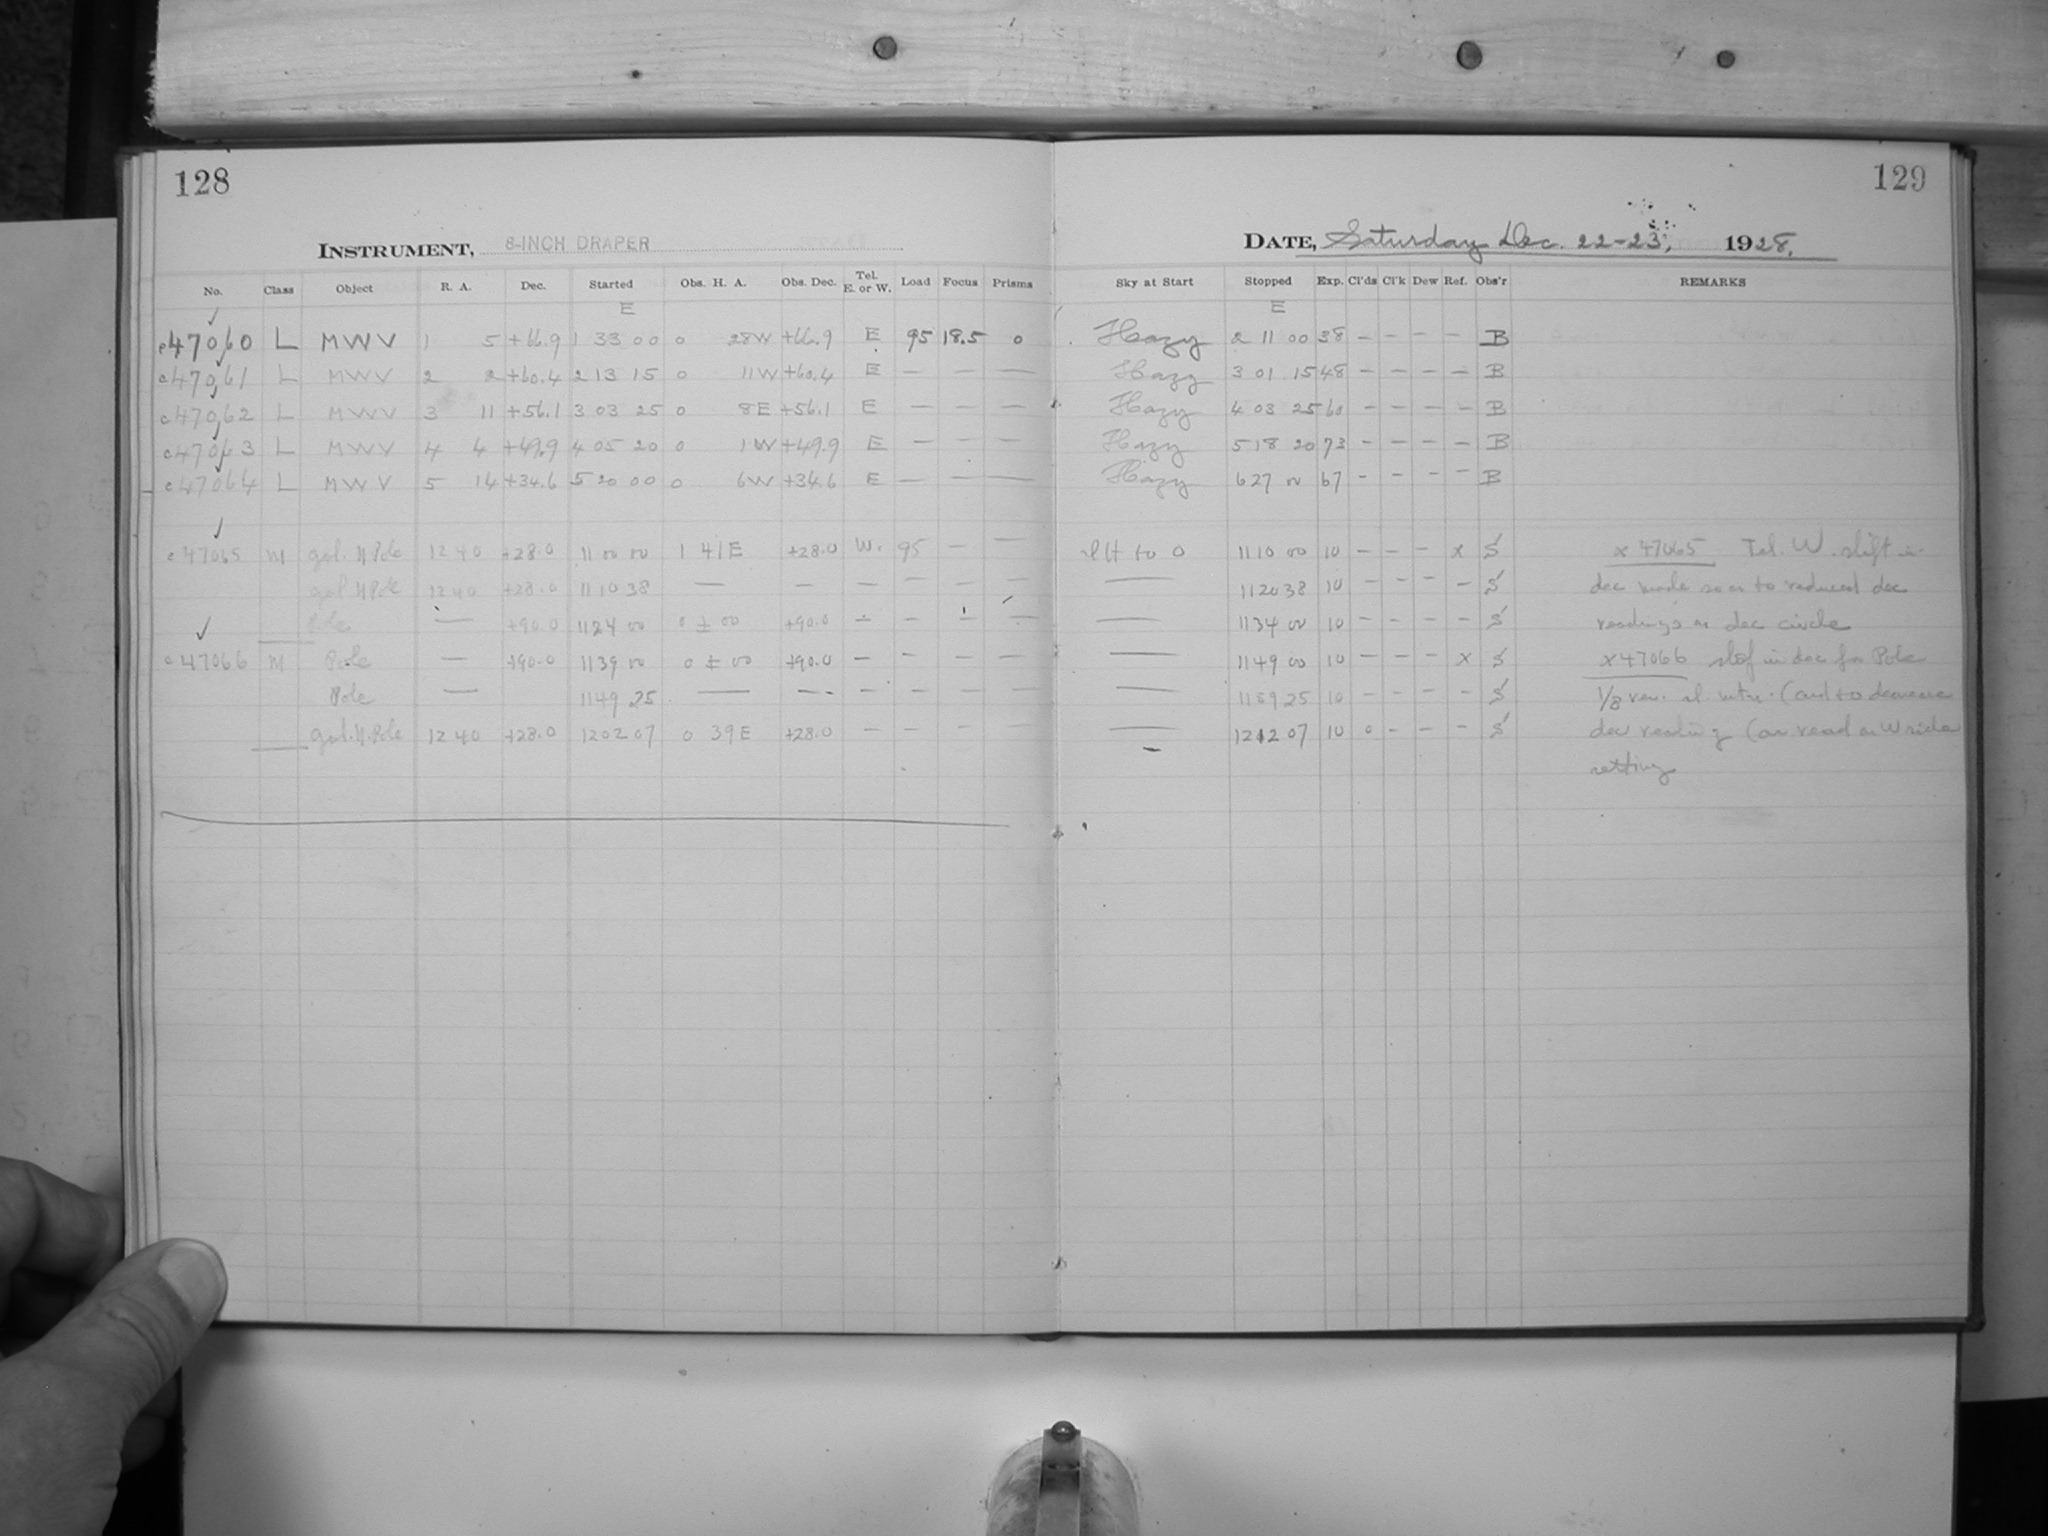 128
129
INSTRUMENT, 8-INCH DRAPER
DATE, Saturday Dec. 22-23, 1928.
No. Class Object R. A. Dec. Started Obs. H. A. Obs. Dec. Tel. E. or W. Load Focus Prisms Sky at Start Stopped Exp. Cl'ds Cl'k Dew Ref. Obs'r REMARKS
E E
c47060 L MWV 1 5 +66.9 1 33 00 0 28W +66.9 E 95 18.5 0 Hazy 2 11 00 38 – – – – B
c47061 L MWV 2 2 +60.4 2 13 15 0 11W +60.4 E – — — Hazy 3 01 15 48 – – – – B
c47062 L MWV 3 11 +56.1 3 03 25 0 8E +56.1 E — — — Hazy 4 03 25 60 – – – – B
c47063 L MWV 4 4 +49.9 4 05 20 0 1W +49.9 E — — — Hazy 5 18 20 73 – – – – B
c47064 L MWV 5 14 +34.6 5 20 00 0 6W +34.6 E — — — Hazy 6 27 00 67 – – – – B
c47065 M gal. N. Pole 12 40 +28.0 11 00 00 1 41E +28.0 W. 95 – — to 0 11 10 00 10 – – – x S x 47065 Tel. W. shift in
gal N Pole 12 40 +28.0 11 10 38 — — – – – — — 11 20 38 10 – – – – S dec made so as to reduced dec
Pole — +90.0 11 24 00 0 ± 00 +90.0 – – – — — 11 34 00 10 – – – – S readings on dec circle
c47066 M Pole — +90.0 11 39 00 0 ± 00 +90.0 – – – — — 11 49 00 10 – – – x S x 47066 in dec for Pole
Pole — 11 49 25 — – – – – – — — 11 59 25 10 – – – – S 1/8 rev. (and to decrease
gal. N. Pole 12 40 +28.0 12 02 07 0 39E +28.0 – – – — — 12 12 07 10 0 – – – S dec reading (as read on W side
setting